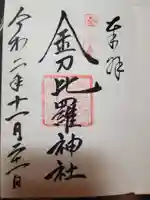 奉拝
金刀比羅神社
令和二年十一月二日